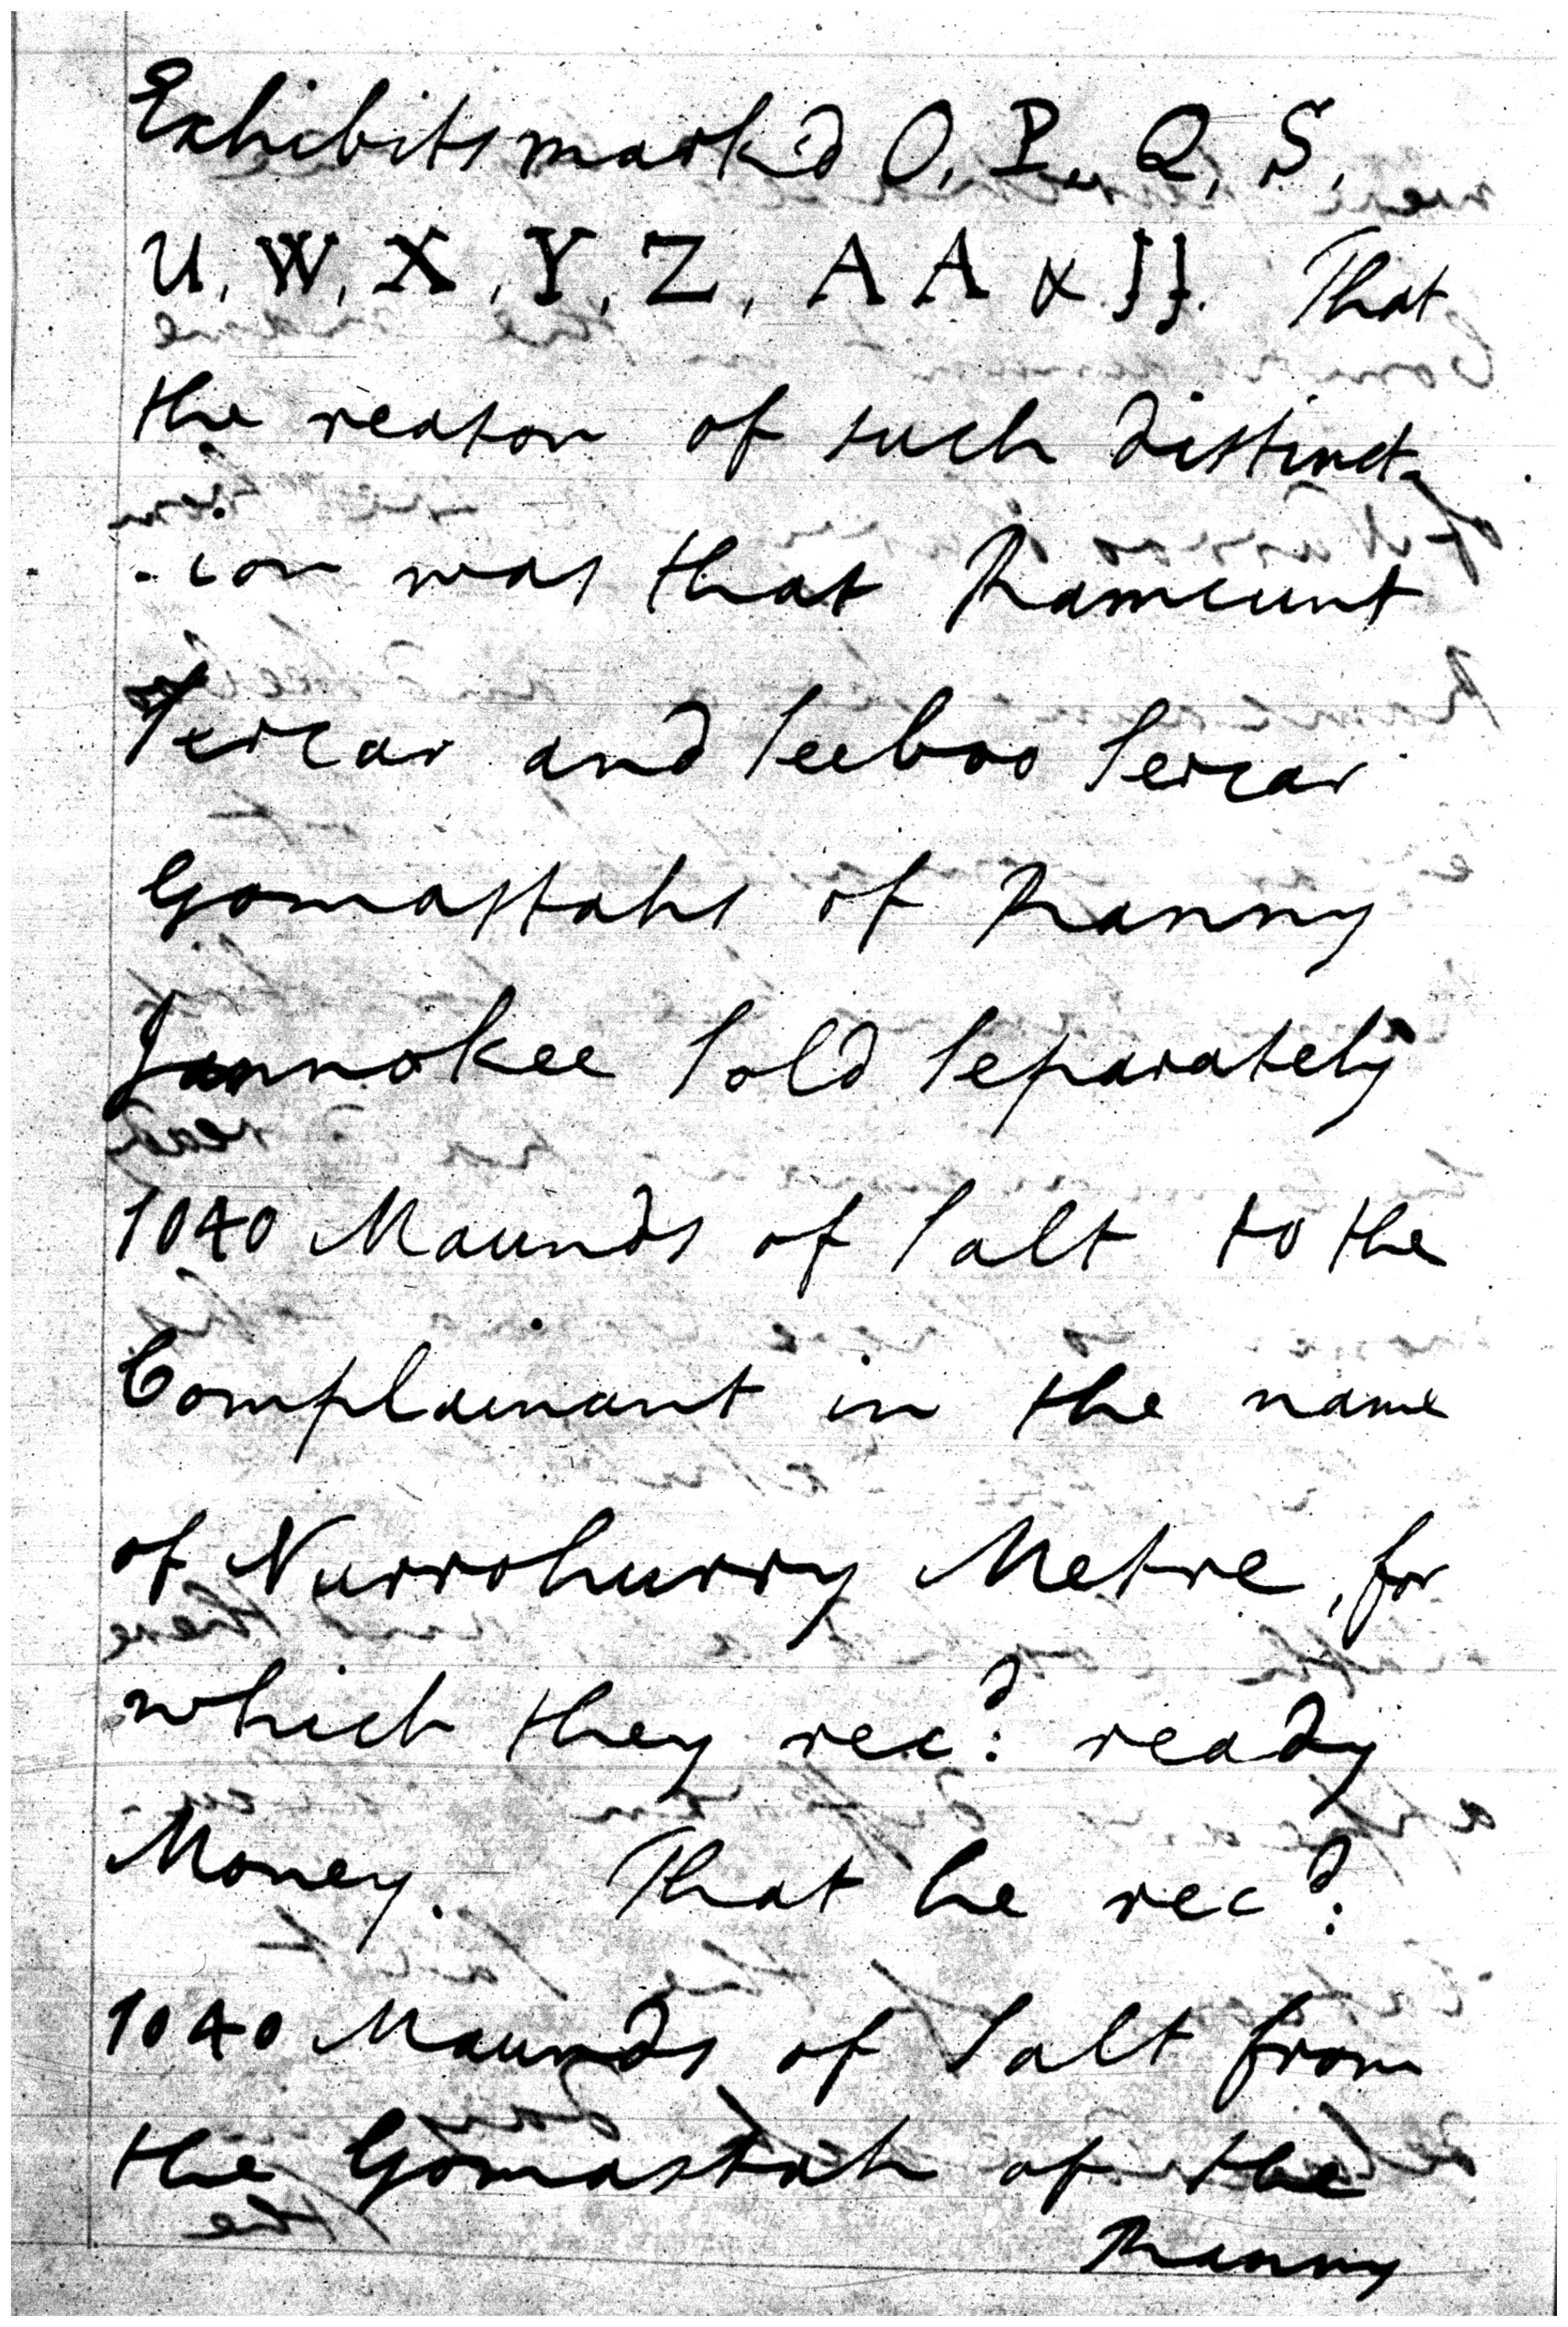 Exhibits mark'd O, P, Q, S,
U, W, X, Y, Z, AA & JJ. That
the reason of such distinct-
-ion was that Ramcunt
Sercar and Seeboo Sercar
Gomastahs of Ranny
Jannokee Sold Separately
1040 Maunds of Salt to the
Complainant in the name
of Nurrohurry Metre, for
which they rec:d ready
Money. That he rec:d
1040 Maunds of Salt from
the Gomastah of the
Ranny